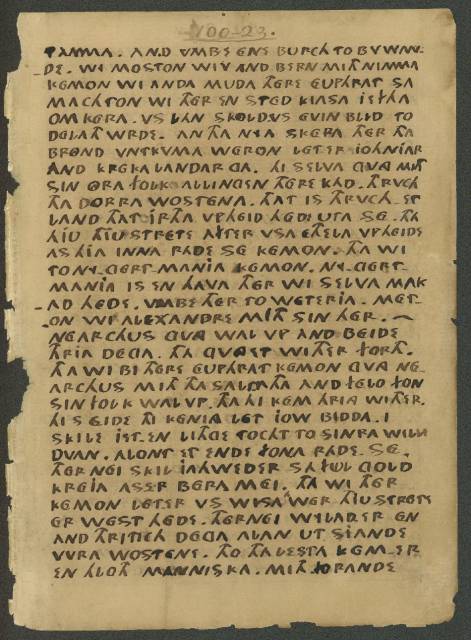 100-23.
TAMMA. AND VMBE ENE BURCH TO BVWAN-
DE. WI MOSTON WIV AND BERN MITH NIMMA
KEMON WI ANDA MUDA THERE EUPHRAT SA
MACHTON WI THER EN STED KIASA IEFTHA
OMKERA. VS LAN SKOLD VS EVIN BLID TO
DELATH WRDE. AN THA NYA SKEPA THER THA
BROND VNTKVMA WERON LETER IOHNIAR
AND KREKALANDAR GA. HI SELVA GVNG MITH
SIN ORA FOLK ALLINGEN THERE KAD. THRVCH
THA DORRA WOSTENA. THAT IS THRVCH ET
LAND THAT IRTHA VPHEID HEDE UTA SE. THA
HIU THIU STRETE AFTER VSA ETHELA VPHEIDE
AS HIA INNA RADE SE KEMON. THA WI
TO NY GERTMANIA KEMON. NY GERT-
MANIA IS EN HAVA THER WI SELVA MAK-
AD HEDE. VMBE THER TO WETERIA. MET-
ON WI ALEXANDRE MITH SIN HER.
NEARCHUS GVNG WAL VP AND BEIDE
THRIA DEGA. THA GVNG ET WITHER FORTH.
THA WI BI THERE EUPHRAT KEMON GVNG NE-
ARCHUS MITH THA SALTATHA AND FELO FON
SIN FOLK WAL VP. THA HI KEM HRING WITHER.
HI SEIDE THI KENING LET IOW BIDDA. I
SKILE IET EN LITHGE TOCHT TO SINRA WILLA
DVAN. ALONT ET ENDE FONA RADE SE.
THERNEI SKIL IAHWEDER SA FUL GOLD
KREIA AS ER BERA MEI. THA WI THER
KEMON LETER VS WISA WER THIU STRETE
ER WEST HEDE. THERNEI WYLADER EN
AND THRITICH DEGA ALAN UT SIANDE
VVRA WOSTENE. THO THA LESTA KEM ER
EN HLOTH MANNISKA. MITH FORANDE